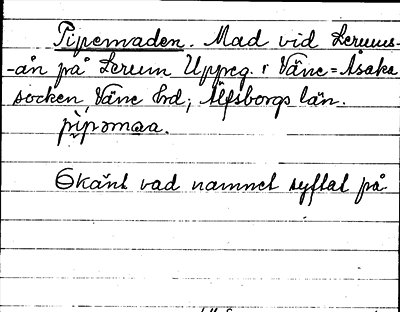 Pipemaden. Mad vid Lerums-
-ån på Lerum Uppeg. i Väne=Åsaka
socken, Väne hrd; Älfsborgs län.
pipəmaa.
Okänt vad namnet syftat på